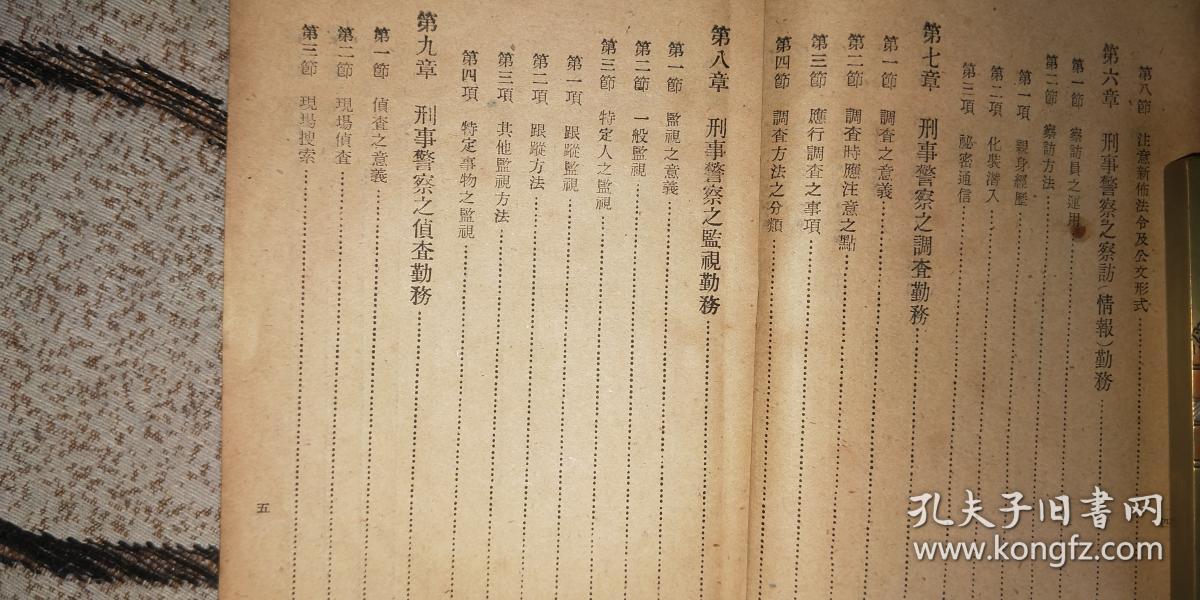 第八節　注意新佈法令及公文形式
第六章　刑事警察之察訪（情報）勤務
第一節　察訪員之運用
第二節　察訪方法
第一項　親身經歷
第二項　化裝潛入
第三項　祕密通信
第七章　刑事警察之調查勤務
第一節　調查之意義
第二節　調查時應注意之點
第三節　應行調查之事項
第四節　調查方法之分類
第八章　刑事警察之監視勤務
第一節　監視之意義
第二節　一般監視
第三節　特定人之監視
第一項　跟蹤監視
第二項　跟蹤方法
第三項　其他監視方法
第四項　特定事物之監視
第九章　刑事警察之偵查勤務
第一節　偵查之意義
第二節　現場偵查
第三節　現場搜索
五
孔夫子旧书网
www.kongfz.com